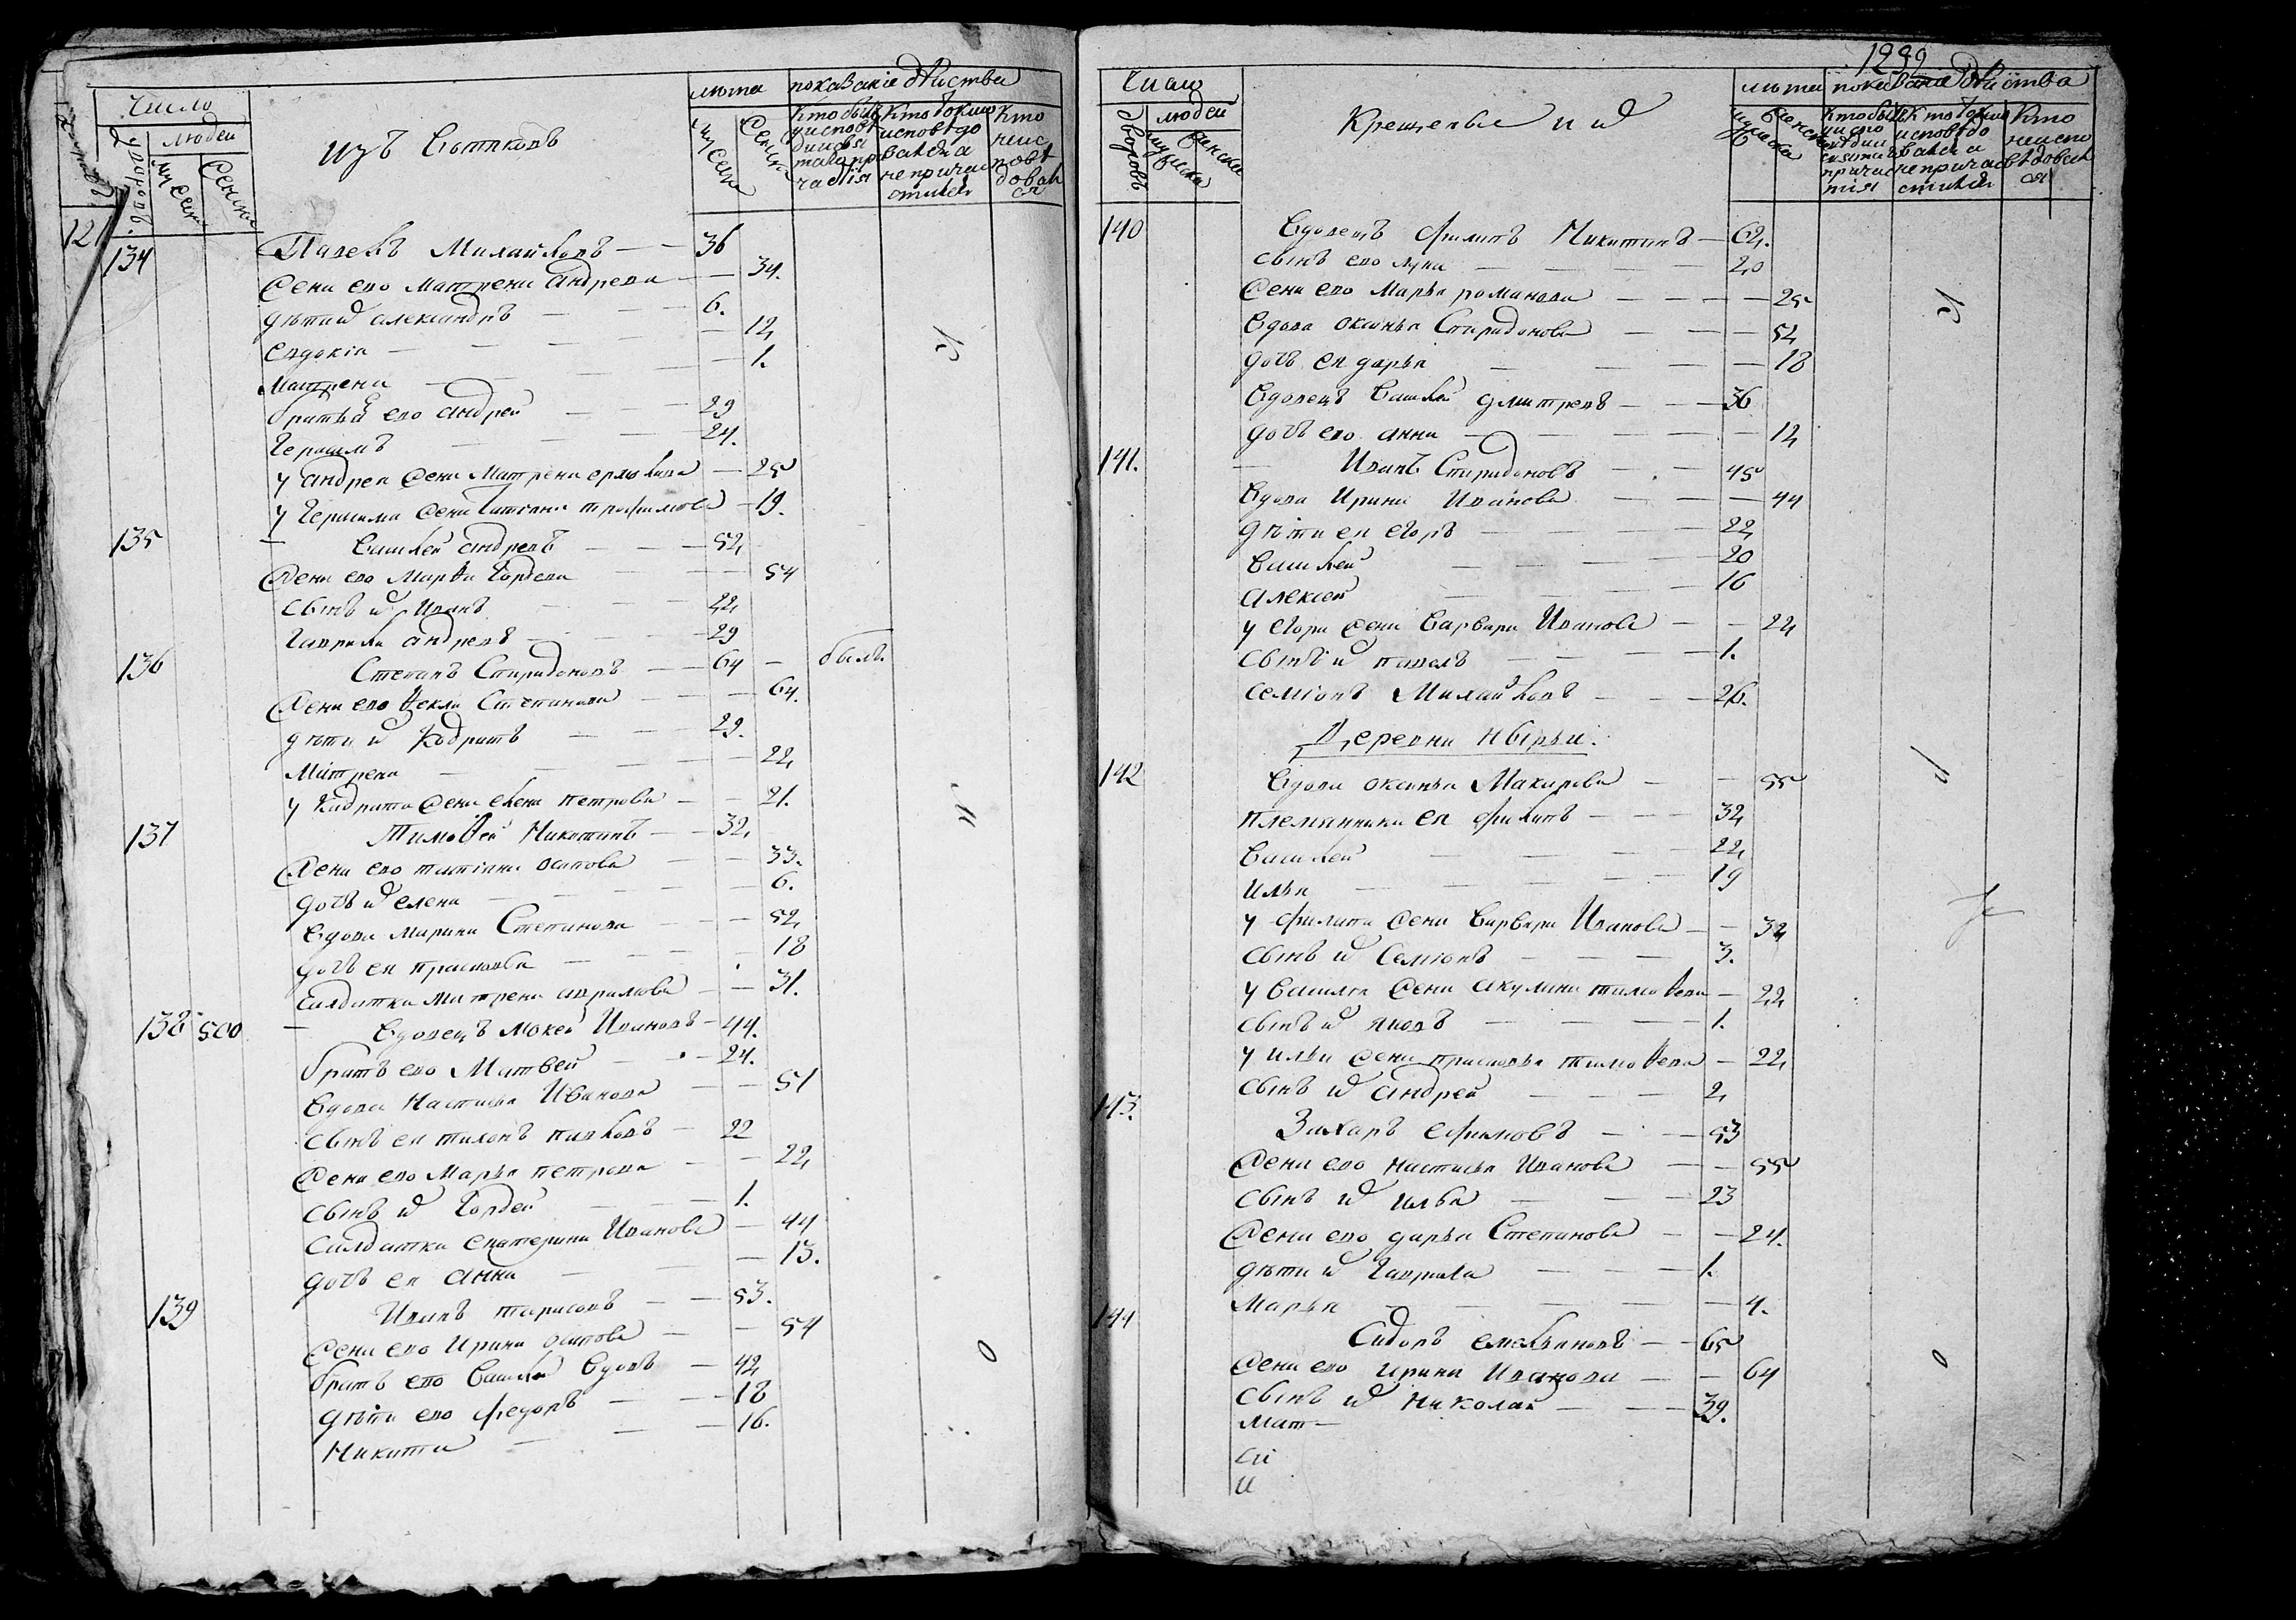 Число
лѣта показание дѣиства
дворовъ людей
муска женска
изъ Вотяковъ
кто былъ у исповѣди и св. таинъ причастия
кто токмо исповѣдовался а не причастился
кто не исповѣдовался
121
134 Павелъ Михайловъ — 36
Жена ево матрена андреева — 34.
дѣти их александръ — 6.
евдокія — 12
матрена — 1.
братья ево андрей — 29
Герасимъ — 24.
у андрея жена матрена ермолаева — 25
у Герасима жена татіана трофимова — 19.
135 Василей андреевъ — 52
Жена ево марѳа Гордеева — 54
сынъ их Иванъ — 22
Гаврила андреевъ — 29
136 Степанъ Спиридоновъ — 64 — былъ
Жена ево ѳекла Степанова — 64.
дѣти их Кодратъ — 29.
матрена — 22
у Кадрата жена елена петрова — 21.
137 Тимоѳей Никитинъ — 32
Жена ево татіана осипова — 33.
дочь их елена — 6.
Вдова марина Степанова — 52
дочь ея прасковья — 18
салдатка матрена аврамова — 31.
138 500 Вдовецъ мокей Ивановъ — 44.
братъ ево Матвей — 24.
Вдова Настасья Иванова — 51
сынъ ея тихонъ павловъ — 22
Жена ево Марья петрова — 22
сынъ их Гордей — 1.
салдатка екатерина Иванова — 44
дочь ея анна — 13.
139 Иванъ тарасовъ — 53.
Жена ево Ирина осипова — 54
братъ ево Василей Вдовъ — 42
дѣти ево федоръ — 18
Никита — 16.
1299
Число
лѣта показание дѣиства
дворовъ людей
мужска женска
Крещеные
кто былъ у исповѣди и святыхъ причастия
кто токмо исповѣдовался а не причастился
кто не исповѣдовался
140 Вдовецъ филипъ Никитинъ — 62.
сынъ ево лука — 20
Жена ево Марья романова — 25
Вдова оксинья Спиридонова — 52
дочь ея дарья — 18
Вдовецъ Василей дмитревъ — 36
дочь ево анна — 12
141. Иванъ Спиридоновъ — 45
Вдова Ирина Иванова — 44
дѣти ея егоръ — 22
Василей — 20
алексей — 16
у егора жена Варвара Иванова — 22
сынъ их павелъ — 1.
семіонъ Михайловъ — 26.
Деревни Нырьи.
142 Вдова оксинья Макарова — 55
племянники ея филипъ — 32
Василей — 22
илья — 19
у филипа жена Варвара Иванова — 32
сынъ их Семіонъ — 3.
у Василья жена акулина тимоѳеева — 22
сынъ их яковъ — 1.
у ильи жена прасковья тимоѳеева — 22
сынъ их андрей — 2
143. Захаръ ефимовъ — 53
Жена ево настасья Иванова — 55
сынъ их илья — 23
Жена ево дарья Степанова — 24.
дѣти их Гаврила — 1.
марья — 4.
144 Сидоръ емельяновъ — 65
Жена ево ирина Иванова — 64
сынъ их николай — 39.
мат